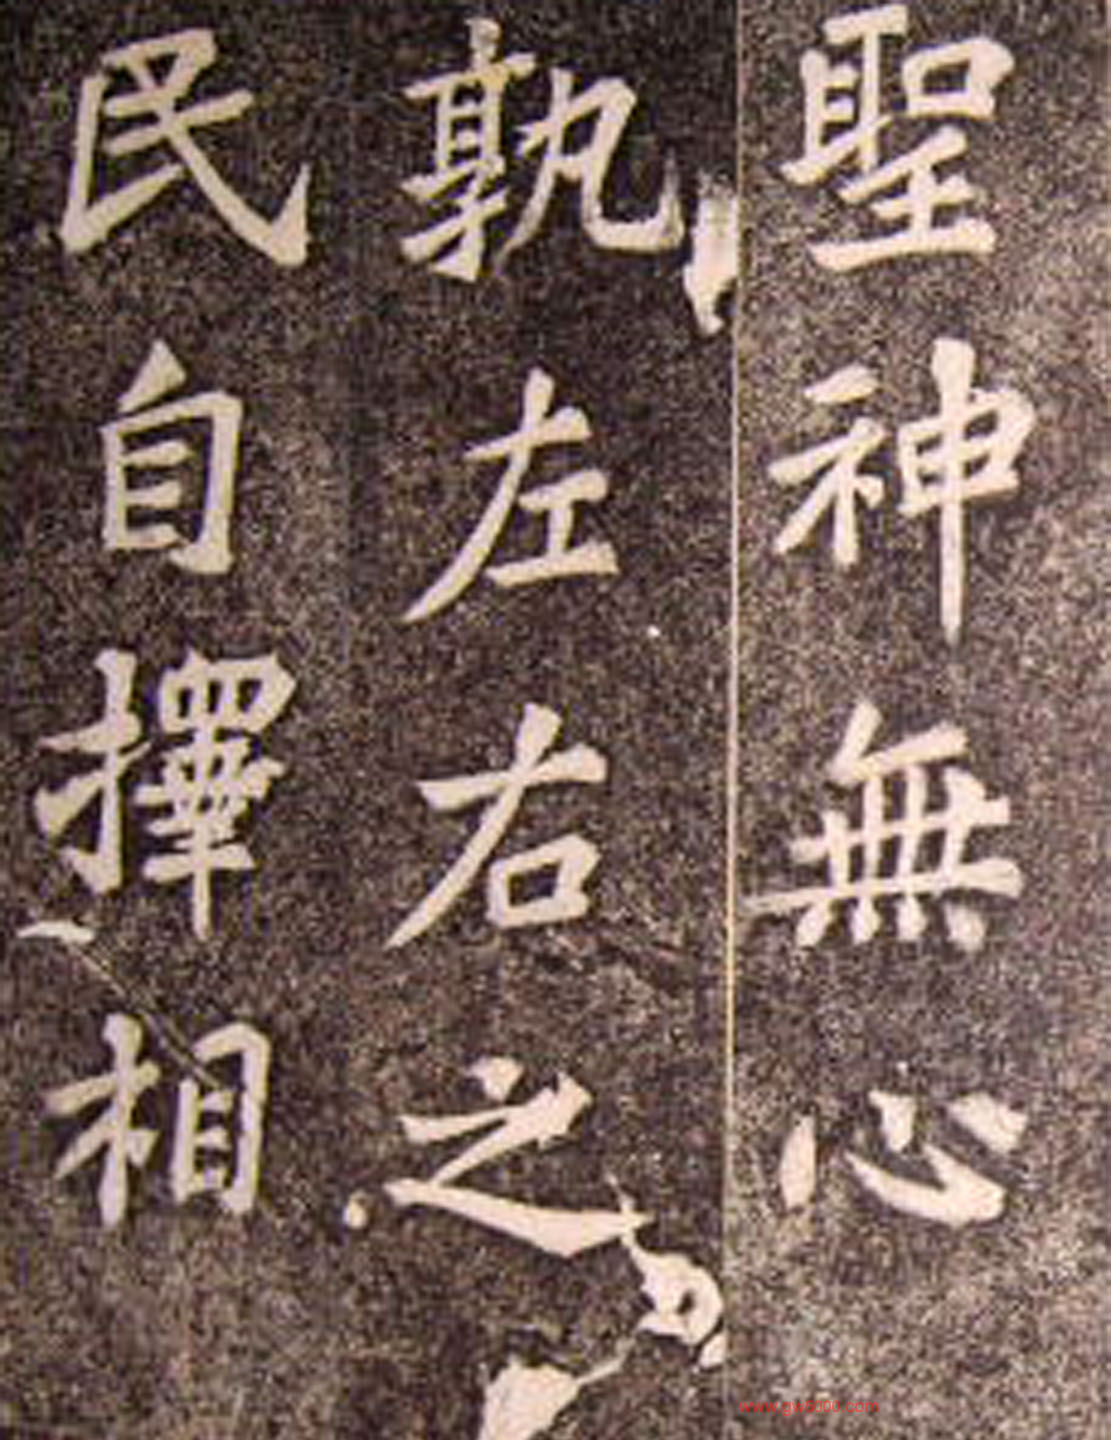 聖神無心
孰左右之
民自擇相